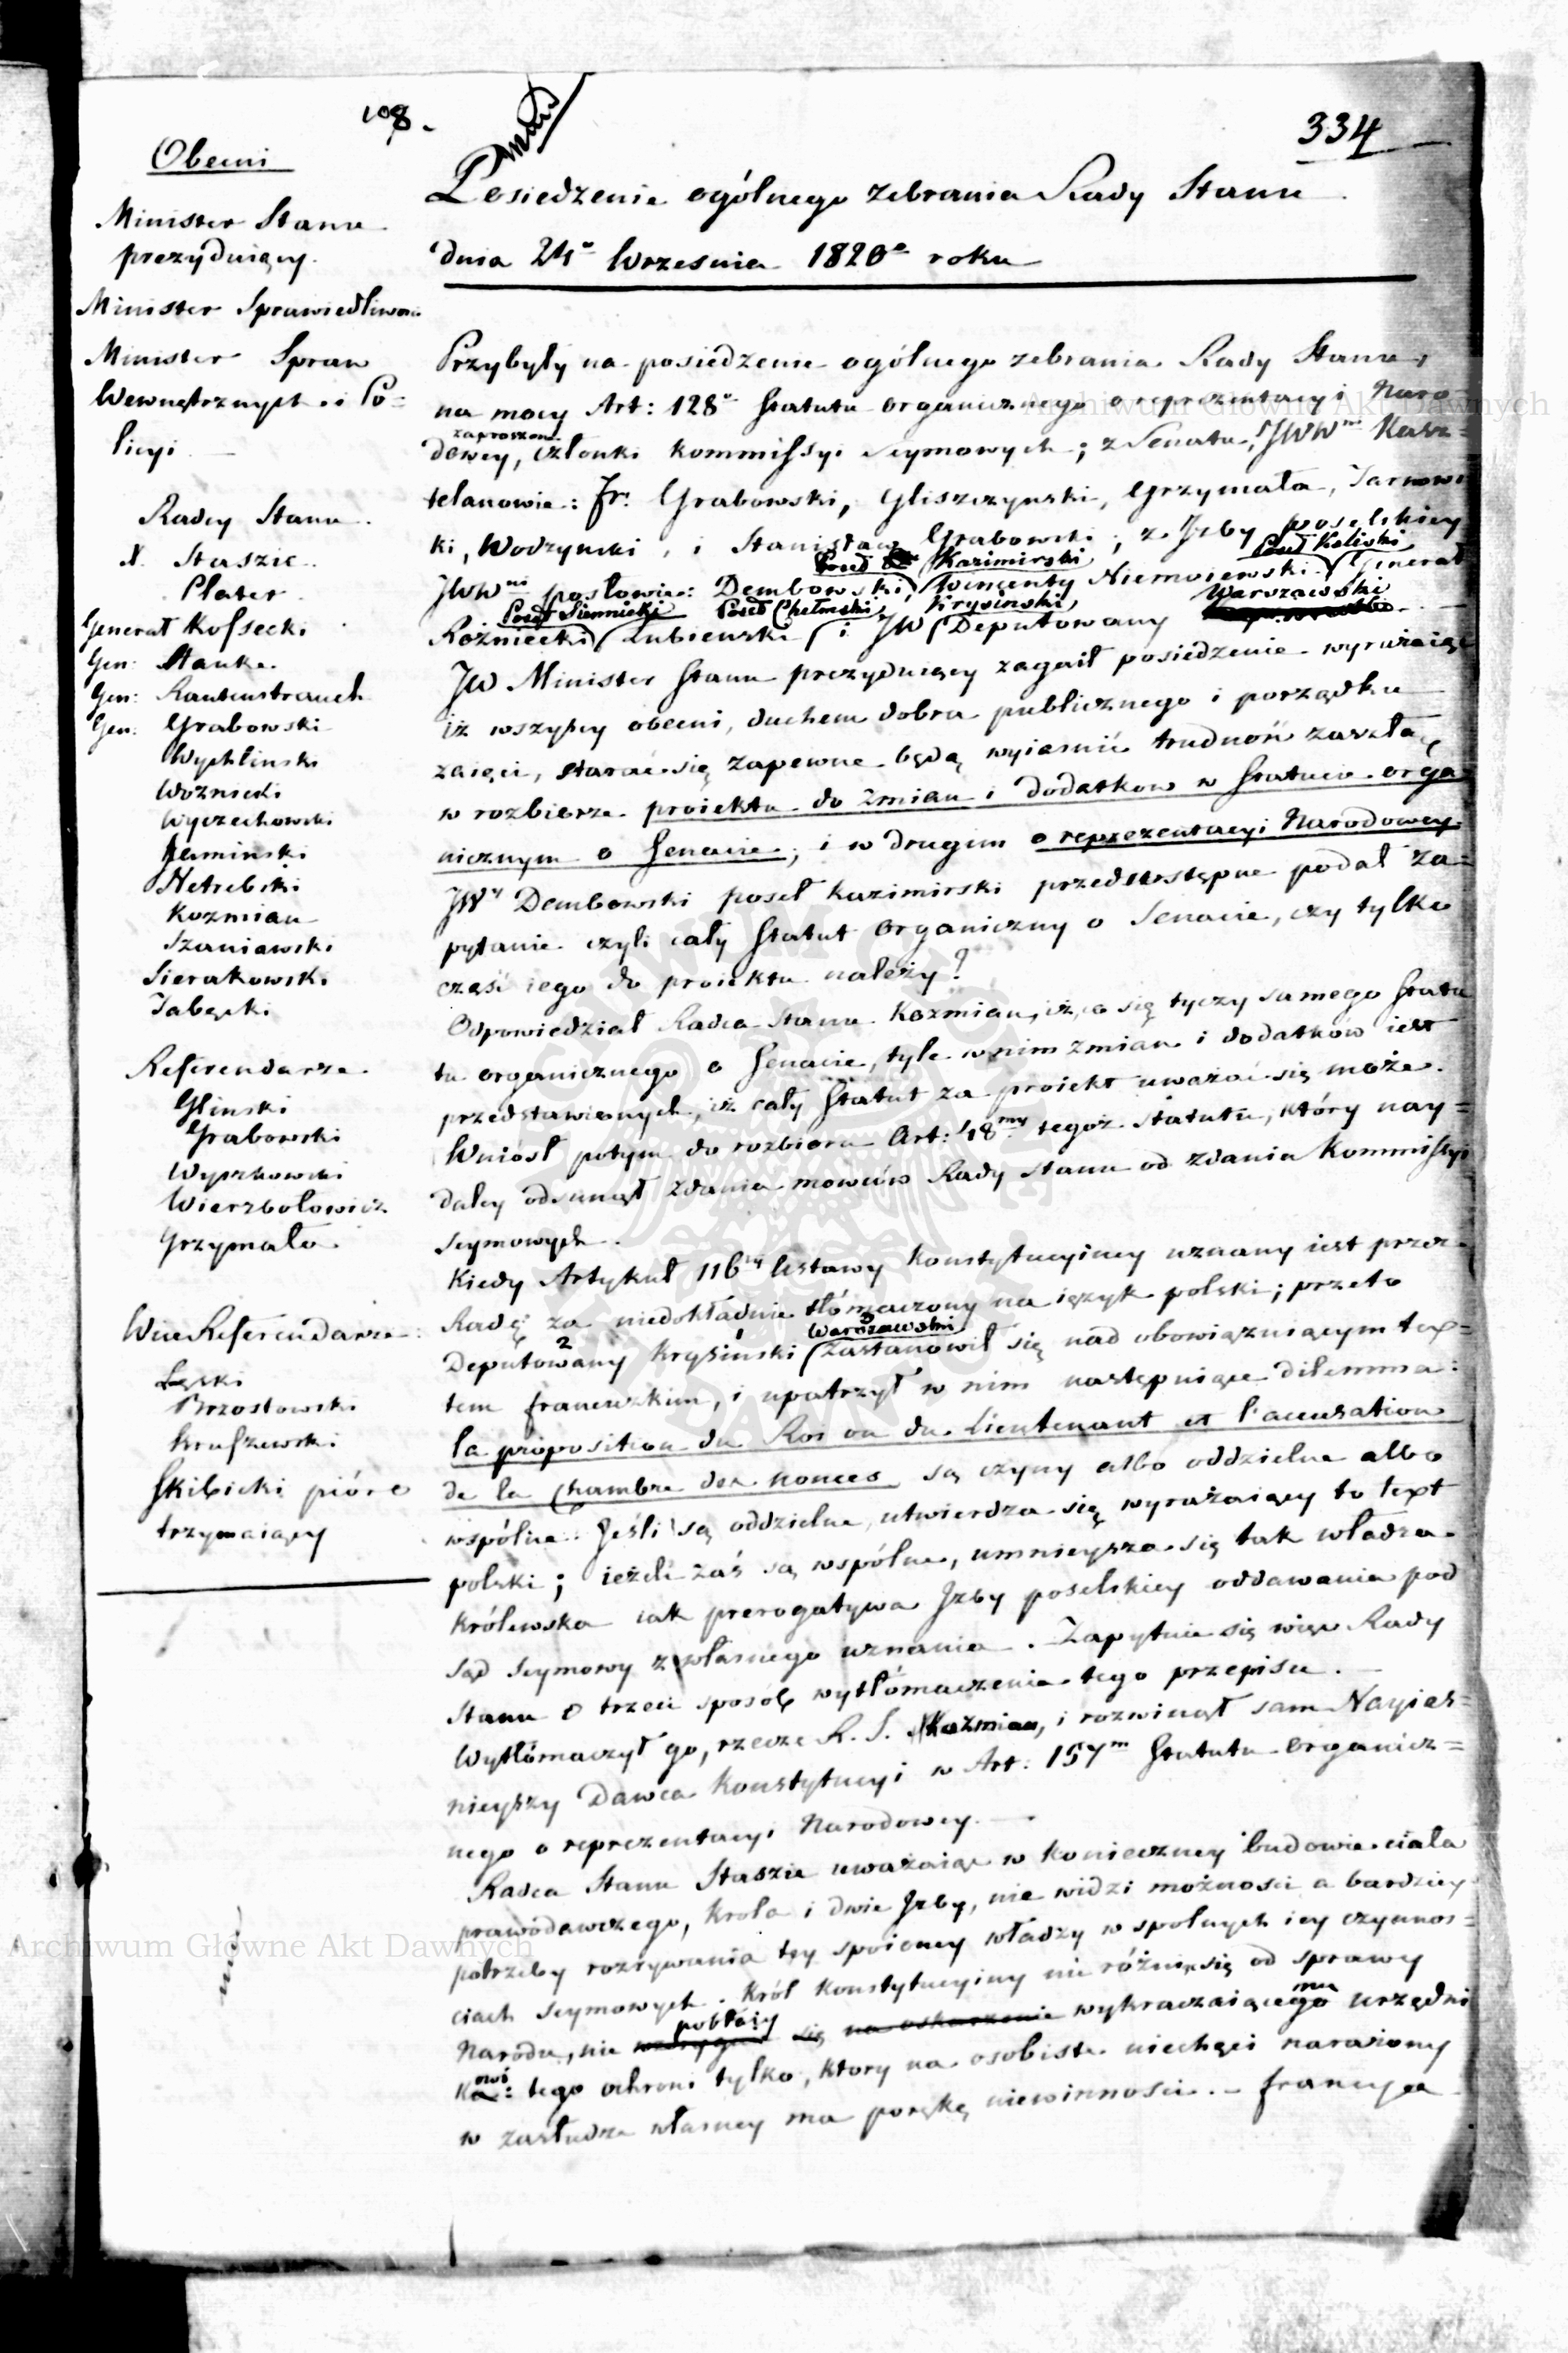 108.
334
Obecni
Minister Stanu
prezyduiący.
Minister Sprawiedliwości
Minister Spraw
Wewnętrznych i Po=
licyi
Radcy Stanu.
X. Staszic.
Plater.
Generał Kossecki
Gen: Hauke.
Gen: Rautenstrauch
Gen: Grabowski
Wychliński
Woźnicki
Wyczechowski
Kamiński
Netrebski
Kozmian
Szaniawski
Sierakowski
Tabęcki
Referendarze
Gliński
Grabowski
Wyszkowski
Wierzbołowicz
Grzymała
Vice Referendarze:
Łęski
Brzostowski
Kruszewski
Skibicki pióro
trzymaiący
Posiedzenie ogólnego zebrania Rady Stanu
dnia 24º Wrzesnia 1820º roku
Przybyły na posiedzenie ogólnego zebrania Rady Stanu,
na mocy Art: 128º Statutu organicznego o reprezentacyi Naro=
zaproszeni
dowey, członki kommissyi Seymowych; z Senatu, JWWni Kasz=
telanowie: Fr: Grabowski, Gliszczyński, Grzymała, Tarnows
ki, Wodzyński, i Stanisław Grabowski; z Jzby poselskiey
Poseł Kazimirski Poseł Kaliski
JWWni posłowie: Dembowski, Wincenty Niemoiewski. Generał
Poseł Siennicki Poseł Chełmski Krysiński Warszawski
Rożniecki Łubieński i JW Deputowany
JW Minister Stanu prezyduiący zagaił posiedzenie wyrażaiąc
iż wszyscy obecni, duchem dobra publicznego i porządku
zaięci, starać się zapewne będą wyiasnić trudność zaszłą,
w rozbiorze proiektu do zmian i dodatkow w Statucie orga
nicznym o Senacie, i w drugim o reprezentacyi Narodowey.
JWy Dembowski poseł Kazimirski przedwstępne podał za=
pytanie czyli cały Statut organiczny o Senacie, czy tylko
część iego do proiektu należy?
Odpowiedział Radca Stanu Kozmian, iż, co się tyczy samego Statu
tu organicznego o Senacie, tyle w nim zmian i dodatków iest
przedstawionych, iż cały Statut za proiekt uważać się może.
Wniósł potym do rozbioru Art: 18my tegoż Statutu, który nay=
daley odsunął zdania mowców Rady Stanu od zdania Kommissyi
Seymowych.
Kiedy Artykuł 116ty Ustawy Konstytucyiney uznany iest przez
Radę za niedokładnie tłómaczony na ięzyk polski; przeto
Warszawski
2
Deputowany Krysiński zastanowił się nad obowiązuiącym tex=
tem francuzkim, i upatrzył w nim następuiące dilemma:
la proposition du Roi ou du Lieutenant et l'accusation
de la Chambre des Nonces są czyny albo oddzielne albo
wspólne. Jeśli są oddzielne, utwierdza się wyrażaiący to text
polski; ieżeli zaś są wspólne, umnieysza się tak władza
Królewska iak prerogatywa Jzby poselskiey oddawania pod
sąd Seymowy z własnego uznania. Zapytuie się więc Rady
Stanu o trzeci sposób wytłómaczenia tego przepisu.
Wytłómaczył go, rzecze R. S. Kozmian, i rozwinął sam Nayias=
nieyszy Dawca Konstytucyi w Art: 157m Statutu organicz=
nego o reprezentacyi Narodowey.
Radca Stanu Staszic uważaiąc w konieczney budowie ciała
prawódawczego, Krola i dwie Jzby, nie widzi możnosci a bardziey
potrzeby rozrywania tey spoioney władzy w spolnych iey czynnos=
ciach seymowych. Król Konstytucyiny nie różniąc się od sprawy
pobłaży mu
Narodu, nie się na oskarzenie wykraczaiącego urzędni
owi
ka: tego ochroni tylko, ktory na osobiste niechęci narażony
w zasłudze własney ma porękę niewinnosci. – Francya
Archiwum Główne Akt Dawnych
Archiwum Główne Akt Dawnych